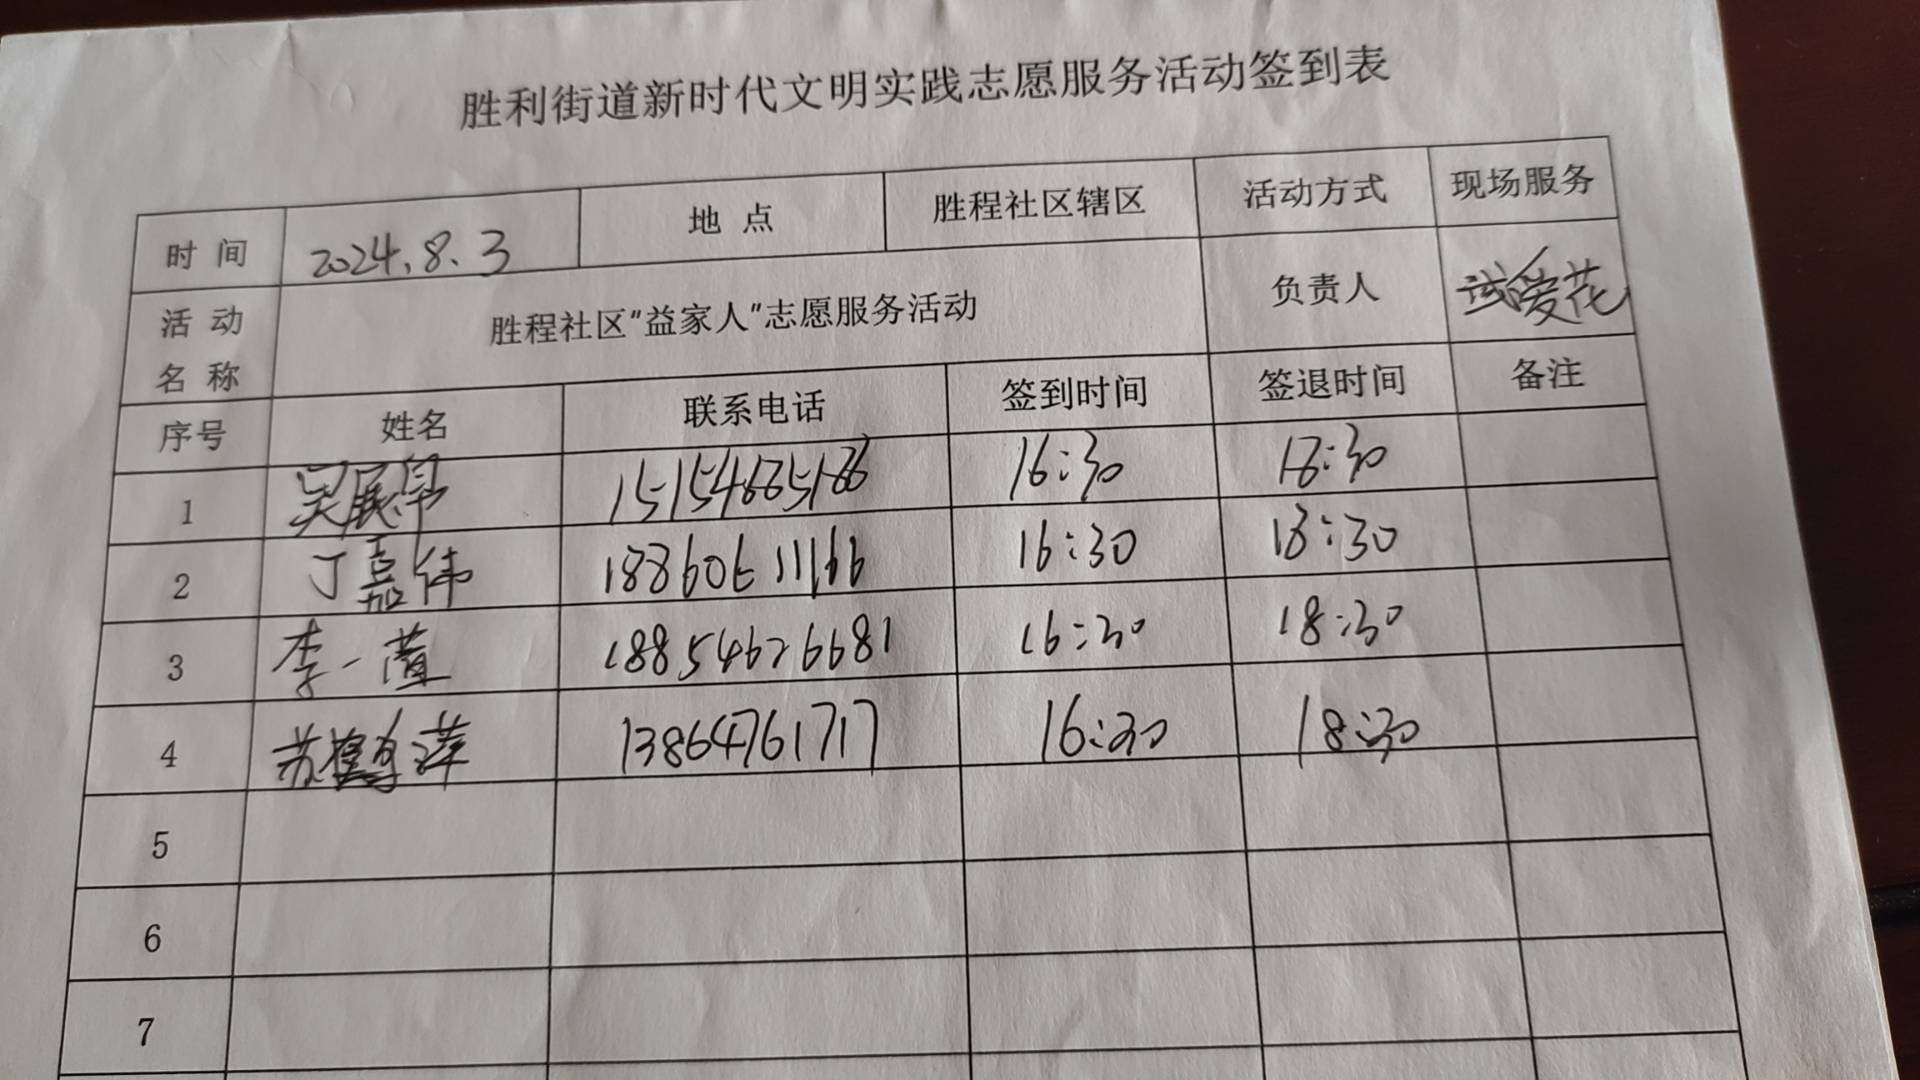 胜利街道新时代文明实践志愿服务活动签到表
时 间 2024.8.3 地 点 胜程社区辖区 活动方式 现场服务
活 动 名 称 胜程社区"益家人"志愿服务活动 负责人 爱花
序号 姓名 联系电话 签到时间 签退时间 备注
1 吴展 16:30 18:30
2 丁嘉伟 16:30 18:30
3 李一萱 18854626681 16:30 18:30
4 苏鹤萍 13864761717 16:30 18:30
5
6
7